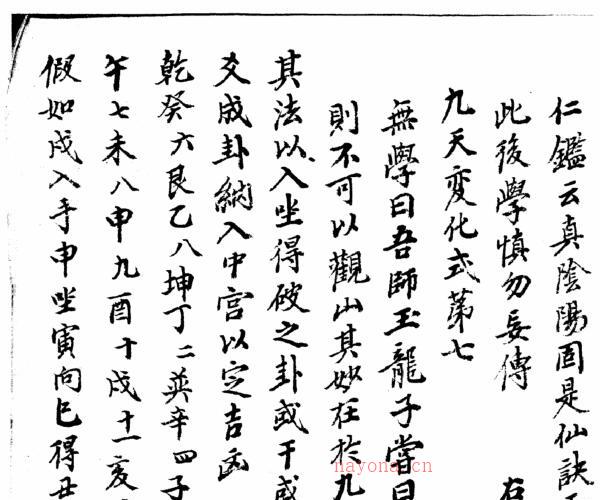 仁鑑云真陰陽固是仙訣
此後學慎勿妄傳
九天變化式第七
無學曰吾師玉龍子嘗曰
則不可以觀山其妙在於九
其法以入坐得破之卦或干或
爻成卦納入中宮以定吉凶
乾癸六艮乙八坤丁二巽辛四子
午七未八申九酉十戌十一亥
假如戌入手申坐寅向巳得丑
nayona.cn